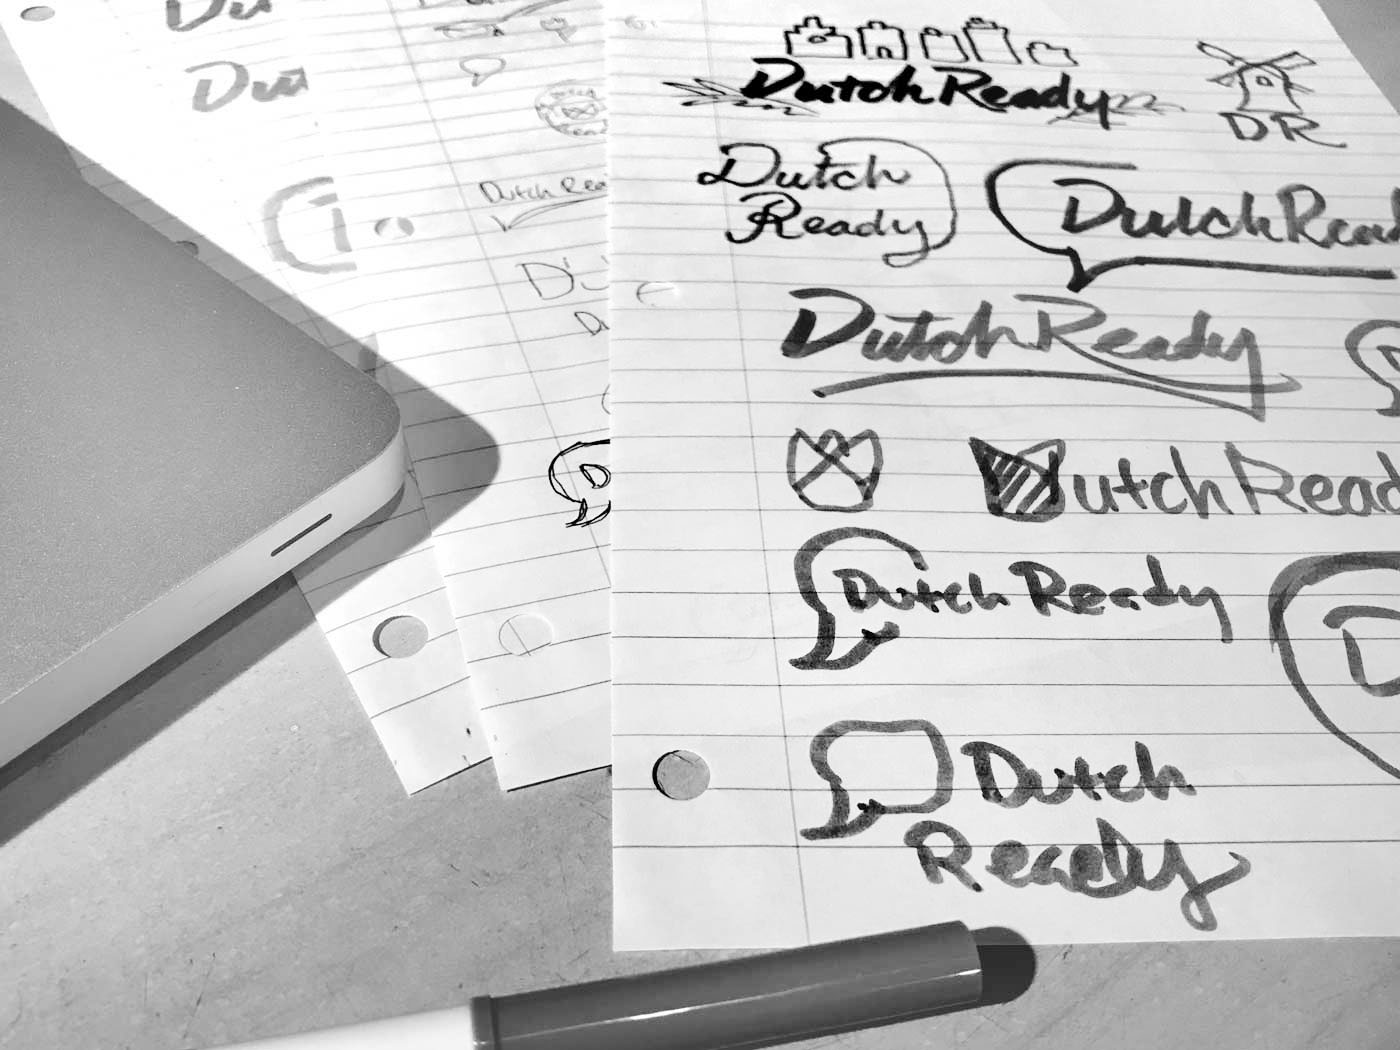 Du
Dut
Dutch Rea
D
D
DutchReady
DR
Dutch
Ready
DutchRead
DutchReady
D
utchRead
Dutch Ready
D
Dutch
Ready